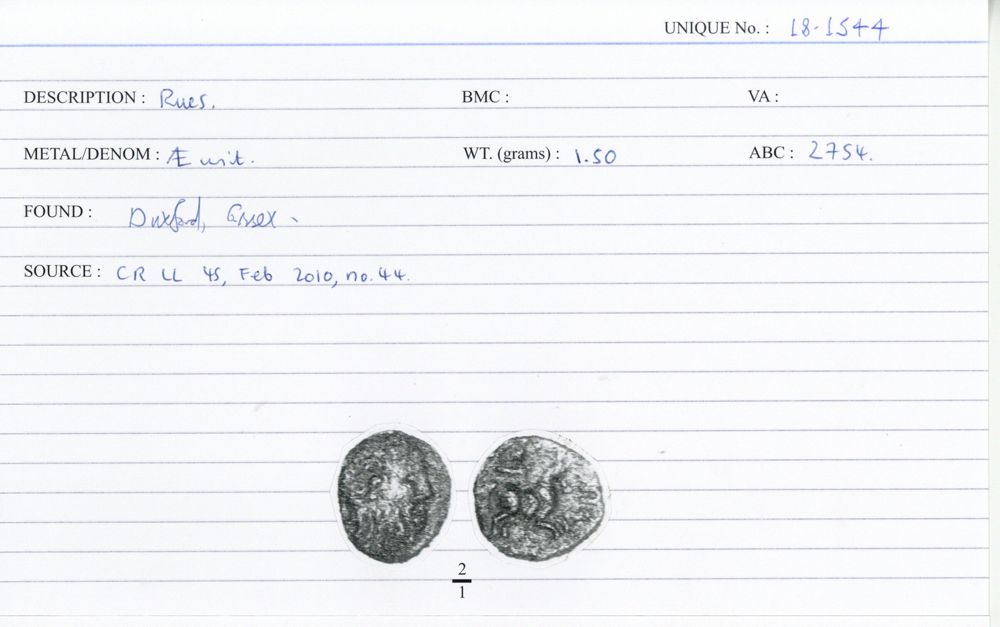 UNIQUE No. : 18-1544
DESCRIPTION : Rues. BMC : VA :
METAL/DENOM : Æ unit. WT. (grams) : 1.50 ABC : 2754.
FOUND : Duxford, Essex.
SOURCE : CR LL 45, Feb 2010, no. 44.
2
1